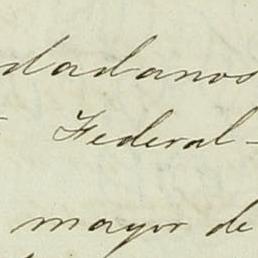 dadanos
Federal-
mayor de